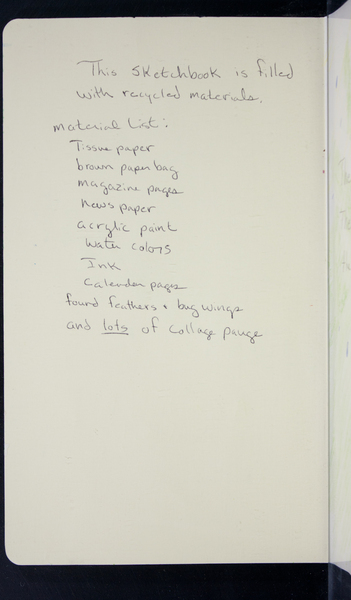 This sketchbook is filled
with recycled materials.
material list:
Tissue paper
brown paper bag
magazine pages
news paper
acrylic paint
water colors
Ink
Calender pages
found feathers + bug wings
and lots of collage